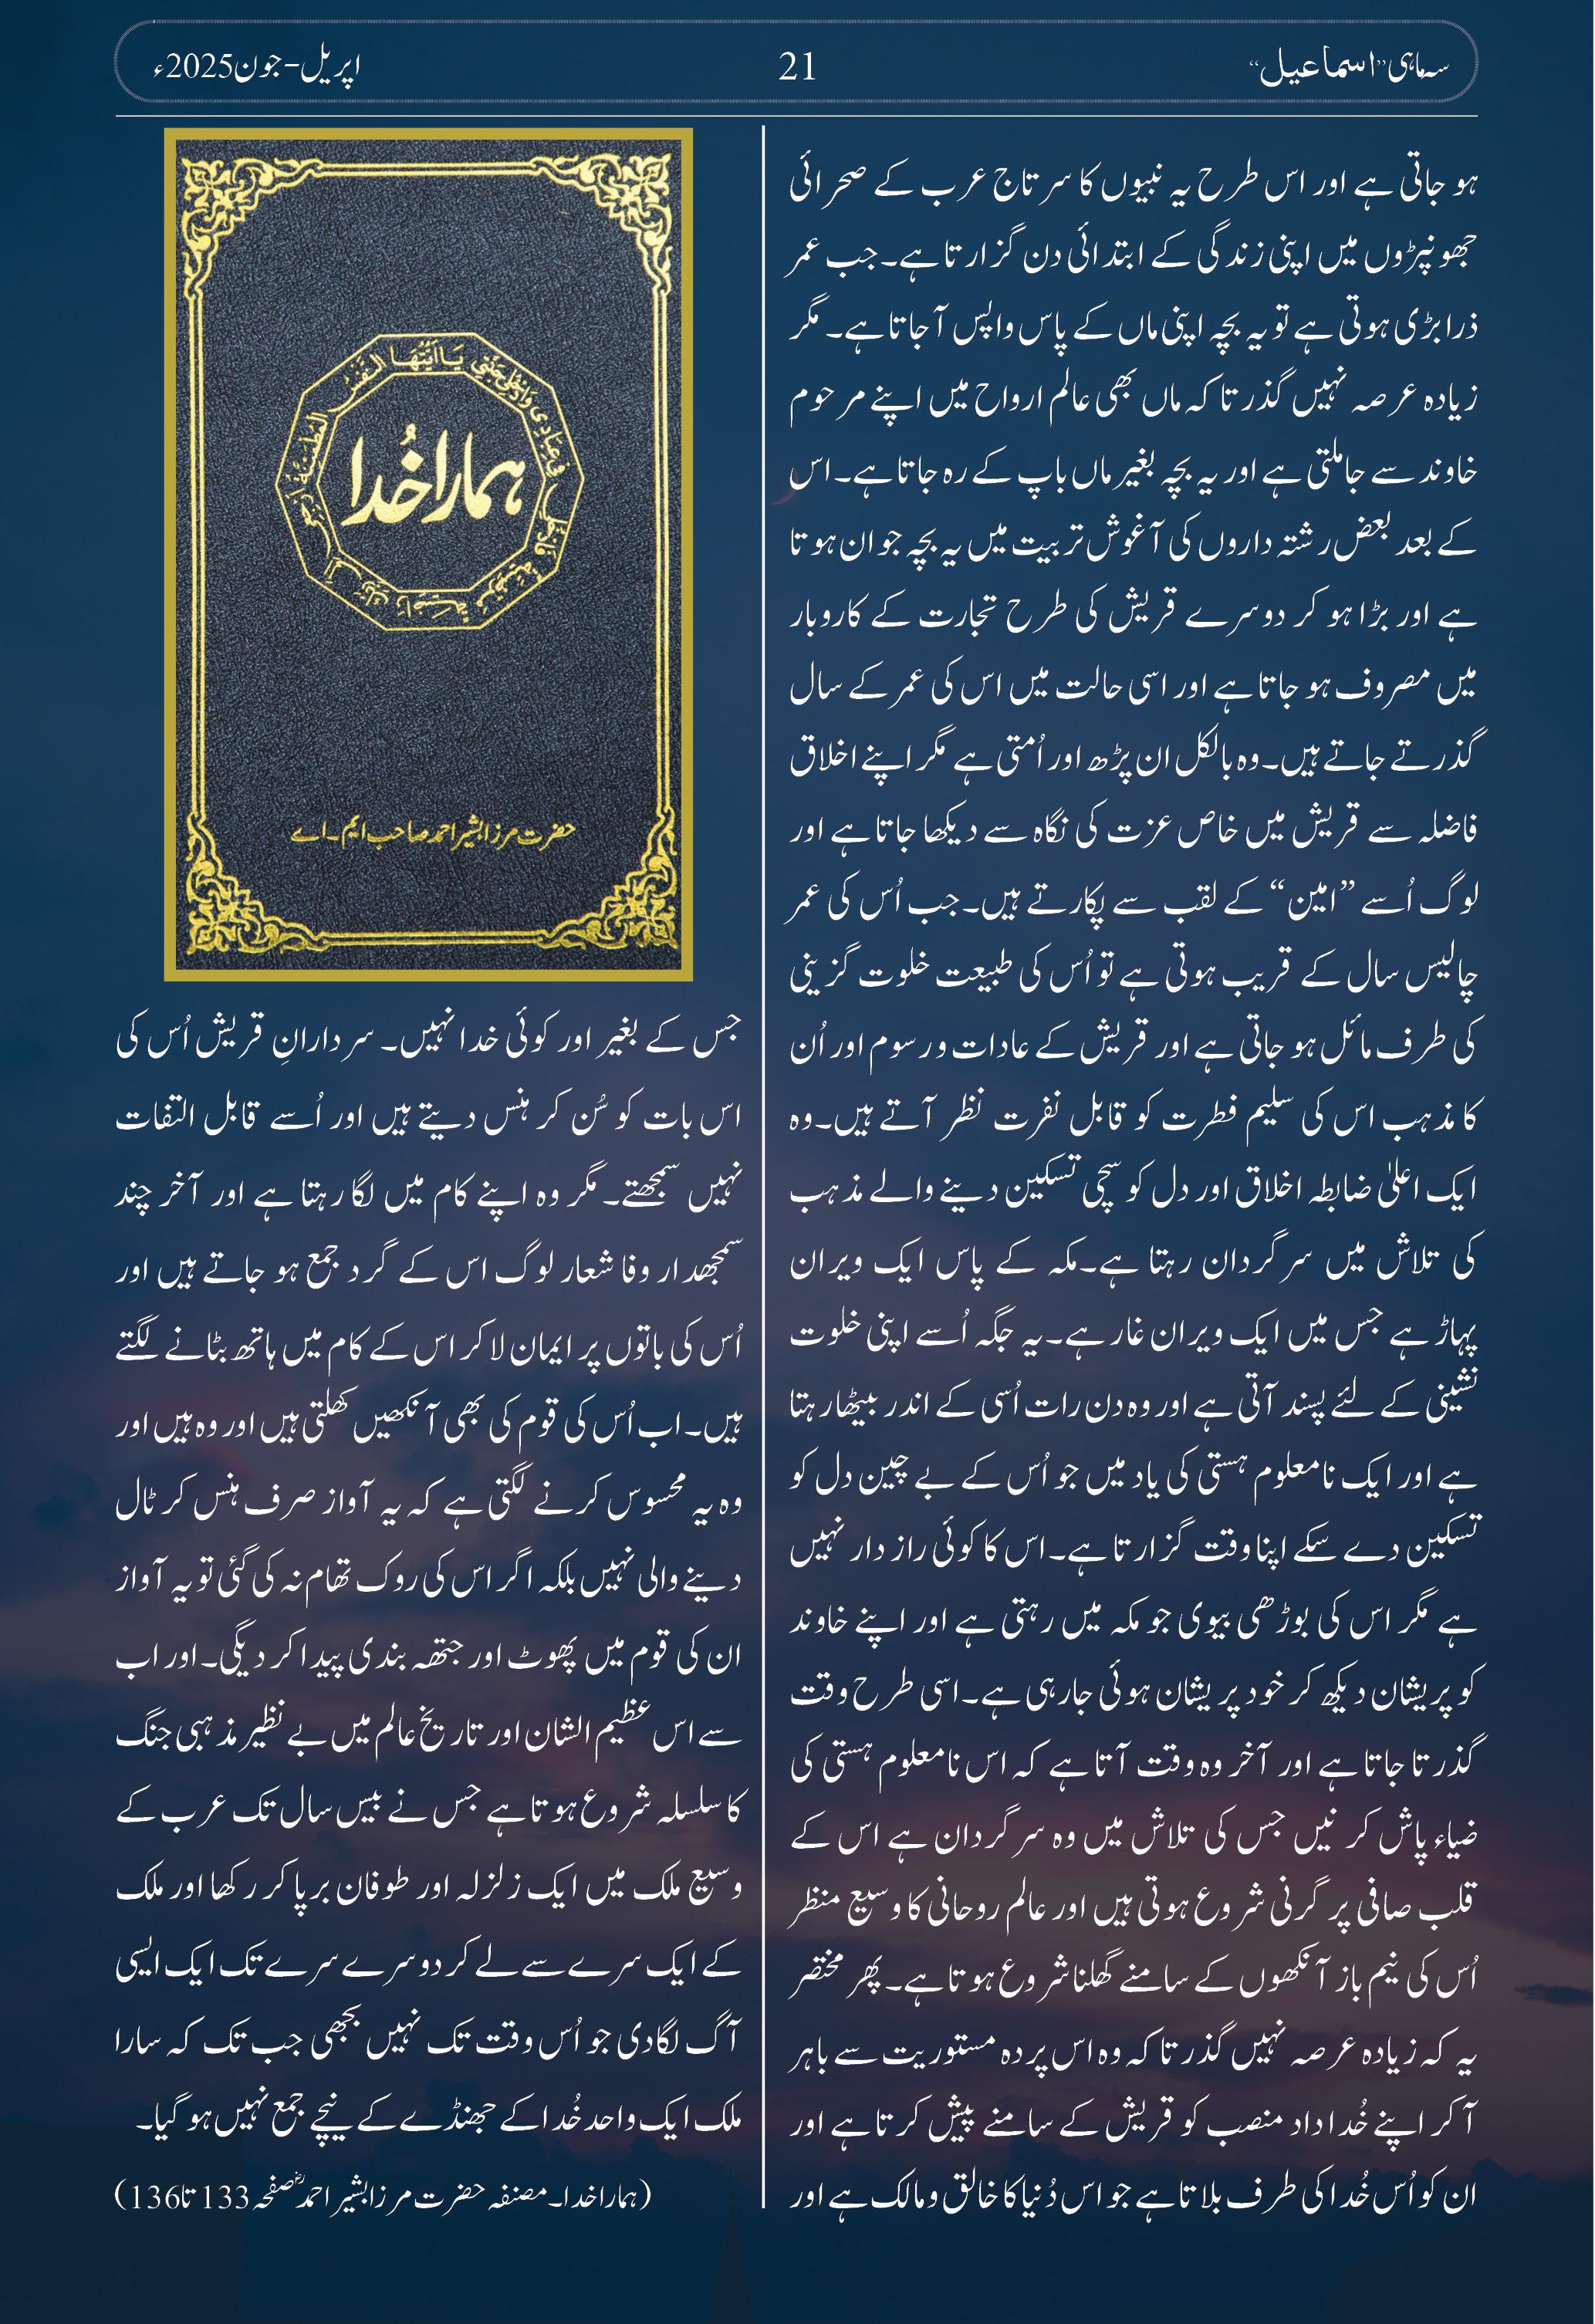 سہ ماہی ”اسماعیل“
21
اپریل-جون2025ء
ہو جاتی ہے اور اس طرح یہ نبیوں کا سرتاج عرب کے صحرائی
جھونپڑوں میں اپنی زندگی کے ابتدائی دن گزارتا ہے۔ جب عمر
ذرا بڑی ہوتی ہے تو یہ بچہ اپنی ماں کے پاس واپس آجاتا ہے۔ مگر
زیادہ عرصہ نہیں گذرتا کہ ماں بھی عالم ارواح میں اپنے مرحوم
خاوند سے جاملتی ہے اور یہ بچہ بغیر ماں باپ کے رہ جاتا ہے۔ اس
کے بعد بعض رشتہ داروں کی آغوش تربیت میں یہ بچہ جوان ہوتا
ہے اور بڑا ہو کر دوسرے قریش کی طرح تجارت کے کاروبار
میں مصروف ہو جاتا ہے اور اسی حالت میں اس کی عمر کے سال
گذرتے جاتے ہیں۔ وہ بالکل ان پڑھ اور اُمتی ہے مگر اپنے اخلاق
فاضلہ سے قریش میں خاص عزت کی نگاہ سے دیکھا جاتا ہے اور
لوگ اُسے ”امین“ کے لقب سے پکارتے ہیں۔ جب اُس کی عمر
چالیس سال کے قریب ہوتی ہے تو اُس کی طبیعت خلوت گزینی
کی طرف مائل ہو جاتی ہے اور قریش کے عادات و رسوم اور اُن
کا مذہب اس کی سلیم فطرت کو قابل نفرت نظر آتے ہیں۔ وہ
ایک اعلیٰ ضابطہ اخلاق اور دل کو سچی تسکین دینے والے مذہب
کی تلاش میں سرگردان رہتا ہے۔ مکہ کے پاس ایک ویران
پہاڑ ہے جس میں ایک ویران غار ہے۔ یہ جگہ اُسے اپنی خلوت
نشینی کے لئے پسند آتی ہے اور وہ دن رات اُسی کے اندر بیٹھا رہتا
ہے اور ایک نامعلوم ہستی کی یاد میں جو اُس کے بے چین دل کو
تسکین دے سکے اپنا وقت گزارتا ہے۔ اس کا کوئی راز دار نہیں
ہے مگر اس کی بوڑھی بیوی جو مکہ میں رہتی ہے اور اپنے خاوند
کو پریشان دیکھ کر خود پریشان ہوئی جارہی ہے۔ اسی طرح وقت
گذرتا جاتا ہے اور آخر وہ وقت آتا ہے کہ اس نامعلوم ہستی کی
ضیاء پاش کرنیں جس کی تلاش میں وہ سرگردان ہے اس کے
قلب صافی پر گرنی شروع ہوتی ہیں اور عالم روحانی کا وسیع منظر
اُس کی نیم باز آنکھوں کے سامنے گھلنا شروع ہوتا ہے۔ پھر مختصر
یہ کہ زیادہ عرصہ نہیں گذرتا کہ وہ اس پردہ مستوریت سے باہر
آکر اپنے خُداداد منصب کو قریش کے سامنے پیش کرتا ہے اور
ان کو اُس خُدا کی طرف بلاتا ہے جو اس دُنیا کا خالق و مالک ہے اور
يَا اَيَّتُهَا النَّفْسُ الْمُطْمَئِنَّةُ ارْجِعِيْ اِلٰى رَبِّكِ رَاضِيَةً مَّرْضِيَّةً فَادْخُلِيْ فِيْ عِبَادِيْ وَادْخُلِيْ جَنَّتِيْ
ہمارا خُدا
حضرت مرزا بشیر احمد صاحب ایم۔اے
جس کے بغیر اور کوئی خدا نہیں۔ سردارانِ قریش اُس کی
اس بات کو سُن کر ہنس دیتے ہیں اور اُسے قابل التفات
نہیں سمجھتے۔ مگر وہ اپنے کام میں لگا رہتا ہے اور آخر چند
سمجھدار وفا شعار لوگ اس کے گرد جمع ہو جاتے ہیں اور
اُس کی باتوں پر ایمان لاکر اس کے کام میں ہاتھ بٹانے لگتے
ہیں۔ اب اُس کی قوم کی بھی آنکھیں کھلتی ہیں اور وہ ہیں اور
وہ یہ محسوس کرنے لگتی ہے کہ یہ آواز صرف ہنس کر ٹال
دینے والی نہیں بلکہ اگر اس کی روک تھام نہ کی گئی تو یہ آواز
ان کی قوم میں پھوٹ اور جتھہ بندی پیدا کر دیگی۔ اور اب
سے اس عظیم الشان اور تاریخ عالم میں بے نظیر مذہبی جنگ
کا سلسلہ شروع ہوتا ہے جس نے بیس سال تک عرب کے
وسیع ملک میں ایک زلزلہ اور طوفان برپا کر رکھا اور ملک
کے ایک سرے سے لے کر دوسرے سرے تک ایک ایسی
آگ لگا دی جو اُس وقت تک نہیں بجھی جب تک کہ سارا
ملک ایک واحد خُدا کے جھنڈے کے نیچے جمع نہیں ہو گیا۔
(ہمارا خدا۔ مصنفہ حضرت مرزا بشیر احمدؓ صفحہ 133 تا 136)